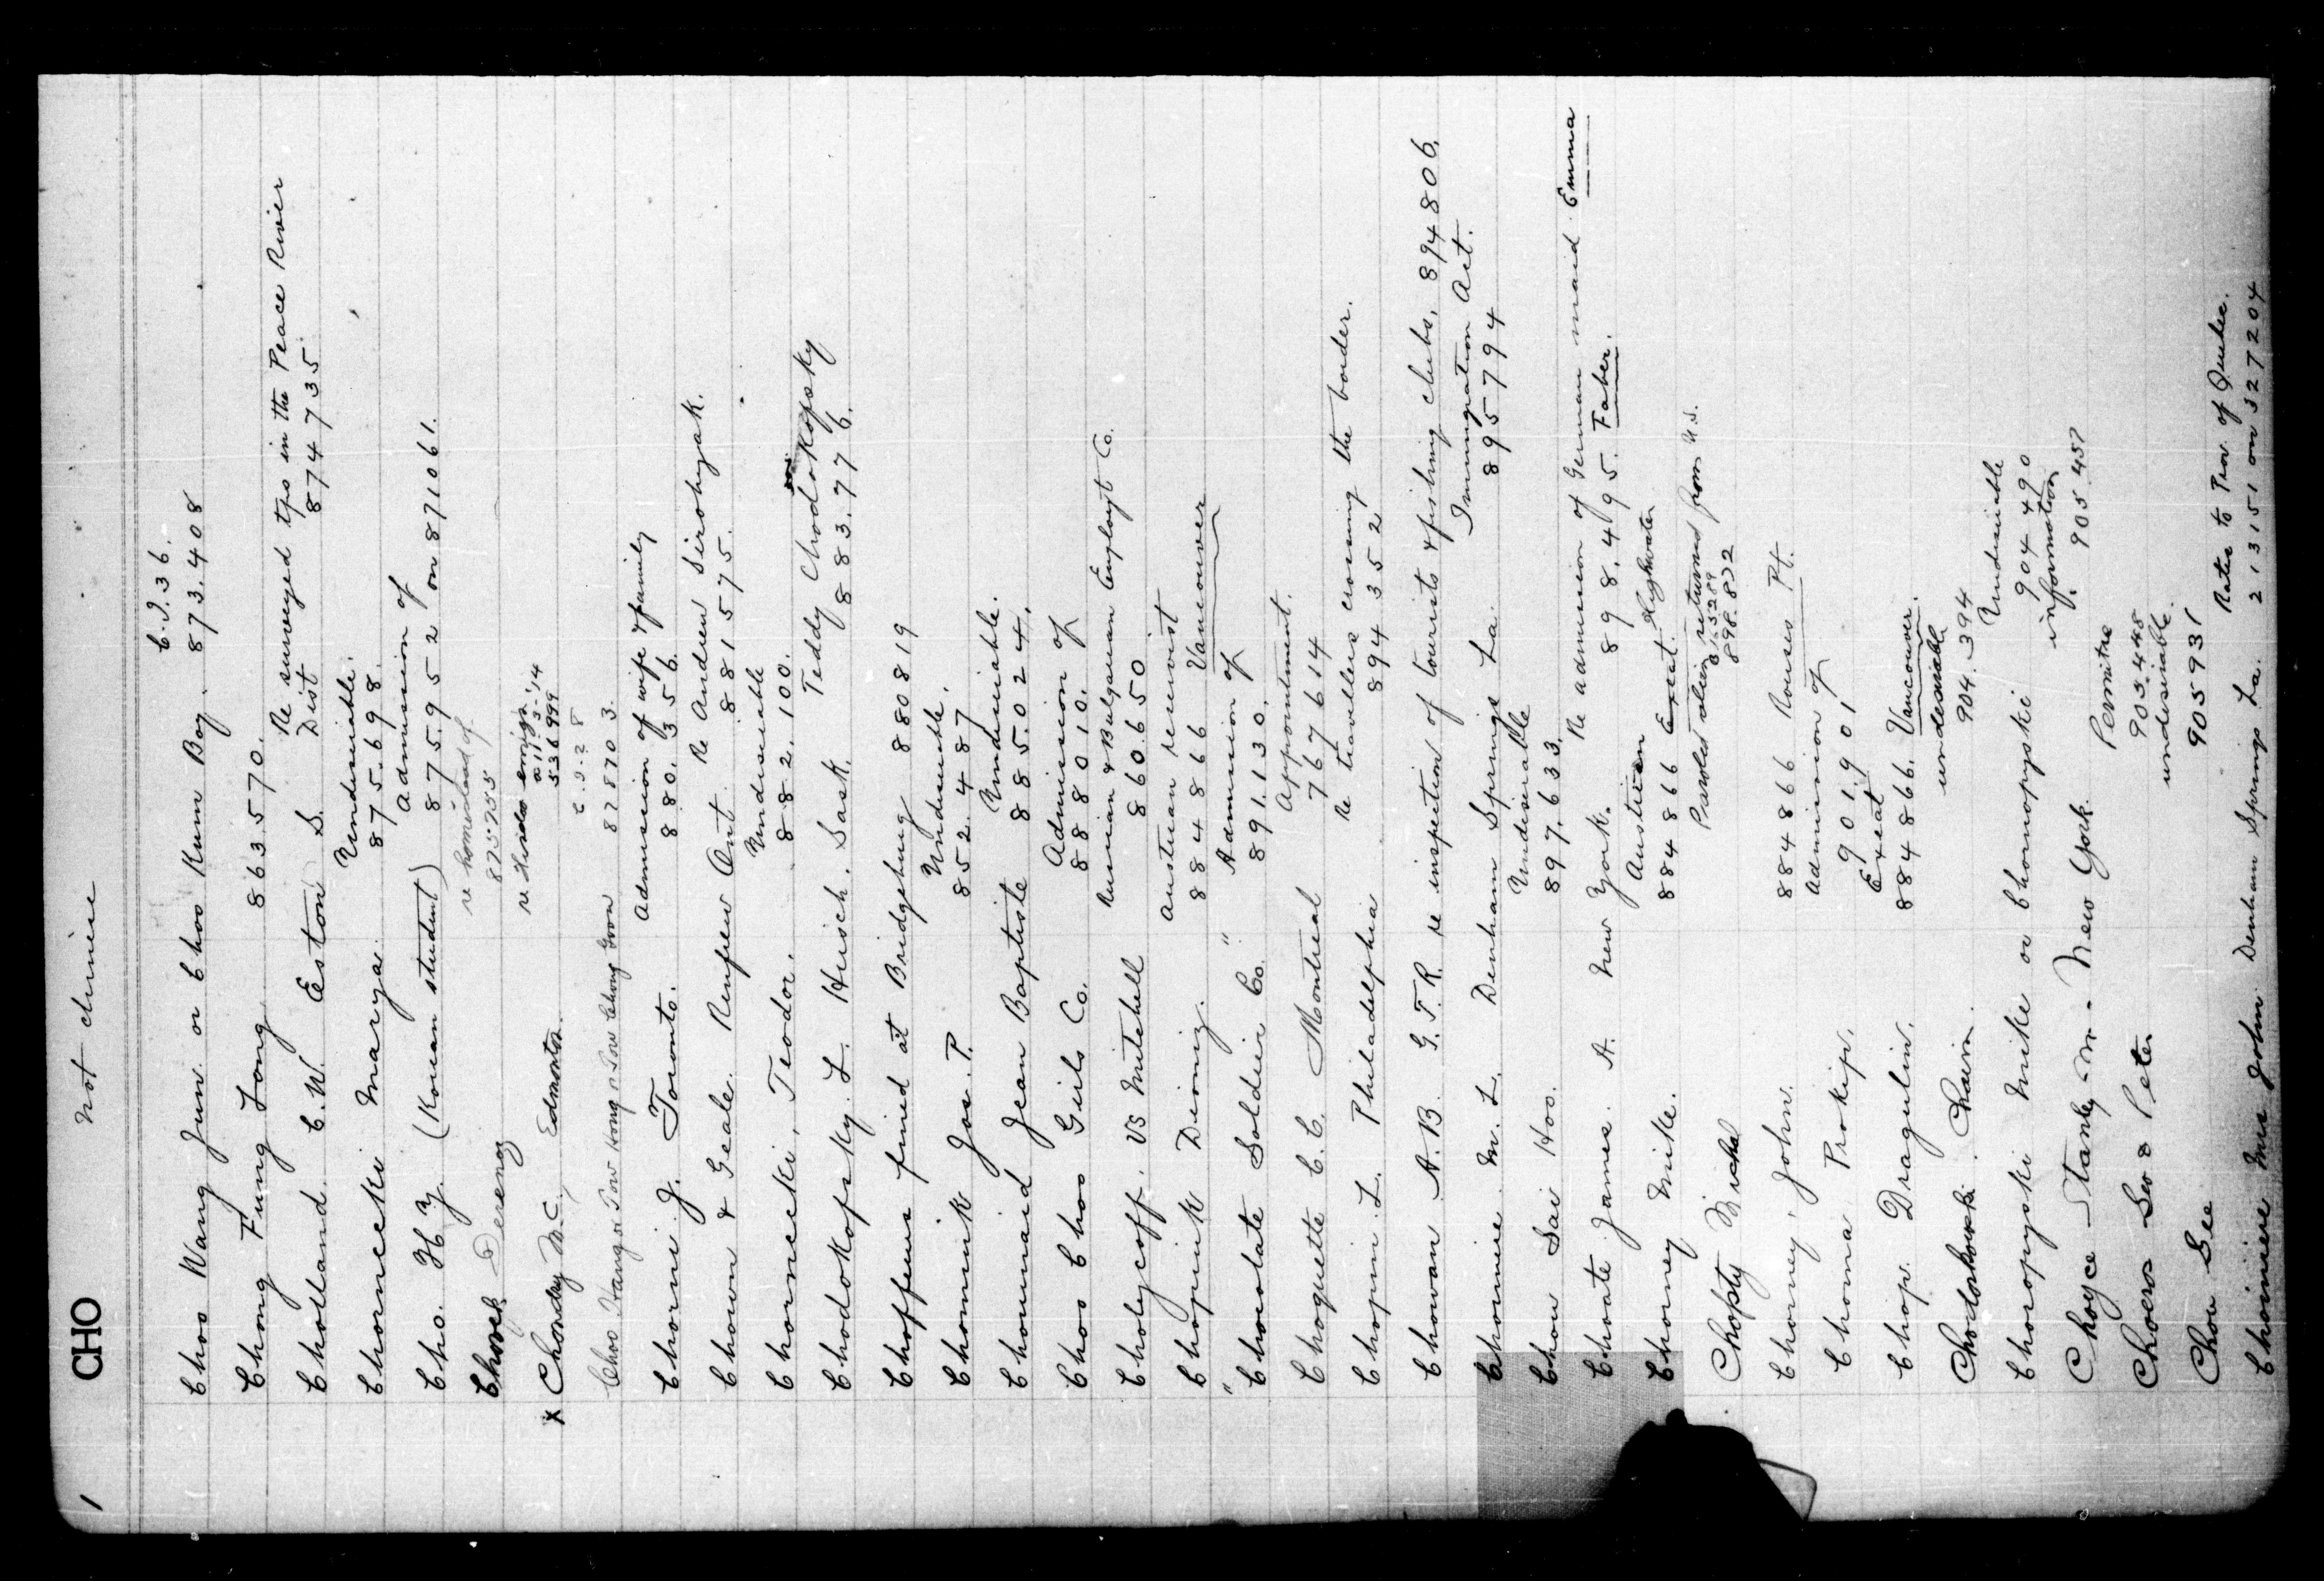 1 CHO Not chinese
C.I.36.
Choo Wang Jun or Choo Kum Boy. 873.408
Chong Fung Long 863570.
Re surveyed tps in the Peace River
Cholland C.W. Eston S. Dist 874735
Undesirable.
Chornecki Marya 875.698.
Admission of
Cho. H.Y. (Korean student) 875.952 on 871061.
re homestead of
Chorek 875755
re Hindoo emigr.
a.11-3-'14
x Chowdry M.C. Edmonton. 536999
C.I.28
878703.
Admission of wife & family
Chorni J. Toronto. 880.356.
Re Andrew Sirohyak.
Chown & Geale. Renfrew Ont 881575.
Undesirable
Chornecki, Teodor. 882.100.
Teddy Chodokofsky
Chodokofsky. L. Hirsch. Sask. 883.776.
Choffeurs fined at Bridgeburg 880819
Undesirable.
Chominik Jos. P. 852.487
Undesirable.
Chounard Jean Baptiste 885.024.
Admission of
Choo Choo Girls Co. 888010.
Russian & Bulgarian Employt Co.
Cholycoff. vs Mitchell 860650
Austrian reservist
Chopinik Dioniz. 884866 Vancouver
" " Admission of
Chocolate Soldier Co. 891.130.
Appointment.
Choquette C.C. Montreal 767614
Re travellers crossing the border.
Chopin. L. Philadelphia 894352
Chowan A.B. G.T.R. re inspection of tourists & fishing clubs, 894806.
Immigration Act.
Chomine M.L. Denham Springs La. 895794
Undesirable
Chow Sai Hoo. 897.633.
Re admission of German maid Emma
Choate James A. New York. 898.495. Faber.
Austrian
Chorney Mike. 884866 Exeat. Highwater
Paroled alien returned from U.S.
Chopty Michal 898.832
Chorney, John. 884866 Rouses Pt.
Admission of
Choma Prokip. 901.901
Exeat
Chop. Dragulin. 884866. Vancouver.
undesirable
Chaim. 904.394
Undesirable
Choropyski Mike or Chomopyski 904490
information
Choyce Stanley M. New York. 905.457
Permitre
905.448
Peter undesirable.
Chou See 905931
Rates to Prov of Quebec.
Choinière Mrs John Denham Springs La. 213151 on 327204